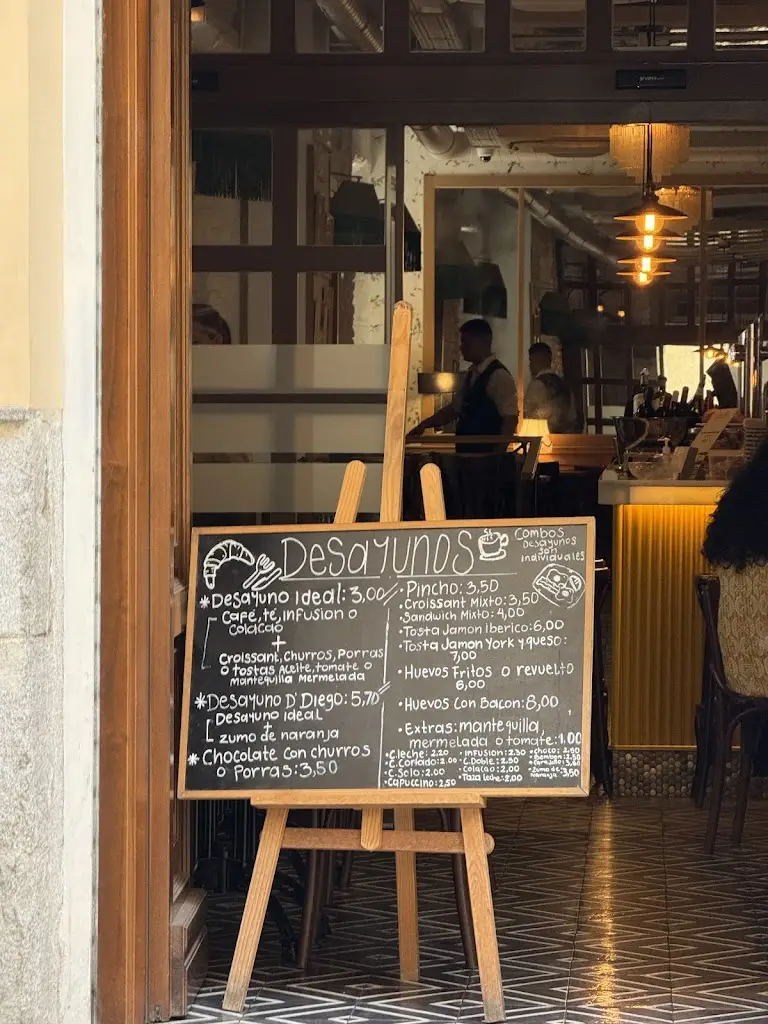 Desayunos
Combos
Desayunos
son
individuales
*Desayuno Ideal: 3,00
Café, té, infusion o
Colacao
+
Croissant, Churros, Porras
o tostas Aceite, tomate o
Mantequilla Mermelada
*Desayuno D'Diego: 5,70
Desayuno ideal
+
zumo de naranja
*Chocolate con churros
o Porras: 3,50
• Pincho: 3,50
• Croissant Mixto: 3,50
• Sandwich Mixto: 4,00
• Tosta Jamon iberico: 6,00
• Tosta Jamon York y queso:
7,00
• Huevos Fritos o revuelto
6,00
• Huevos Con Bacon: 8,00
• Extras: mantequilla,
mermelada o tomate: 1.00
• C.leche: 2.20
• C. Cortado: 2.00
• C. Solo: 2.00
• Capuccino: 2,50
• infusion: 2.30
• C. Doble: 2.50
• Colacao: 2.00
• Taza leche: 2.00
• Zumo de 3,50
Naranja